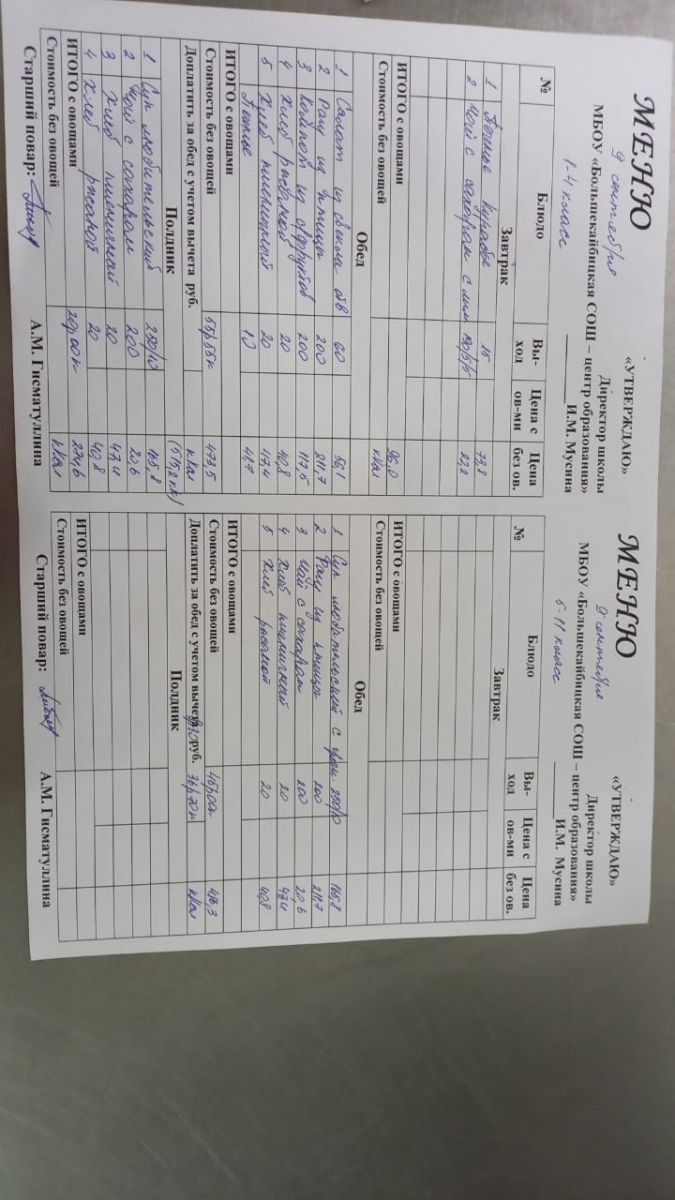 МЕНЮ
«УТВЕРЖДАЮ»
9 сентября
Директор школы
МБОУ «Большекайбицкая СОШ – центр образования»
1-4 класс
И.М. Мусина
№ Блюдо Вы-ход Цена с ов-ми Цена без ов.
Завтрак
1 Печенье 15 73,8
2 Чай с сахаром с лим 22,2
ИТОГО с овощами 96,0
Стоимость без овощей ккал
Обед
1 Салат из свеклы отв 60 56,1
2 Рагу из птицы 200 211,7
3 Компот из сухофруктов 200 117,5
4 Хлеб ржаной 20 40,8
5 Хлеб пшеничный 20 47,4
Печенье
ИТОГО с овощами
Стоимость без овощей 473,5
Доплатить за обед с учетом вычета руб. ккал
Полдник
1 Суп любительский 250/10 165,8
2 Чай с сахаром 200 20,6
3 Хлеб пшеничный 20 47,4
4 Хлеб ржаной 20 40,8
ИТОГО с овощами 274,6
Стоимость без овощей ккал
Старший повар: А.М. Гисматуллина
МЕНЮ
«УТВЕРЖДАЮ»
9 сентября
Директор школы
МБОУ «Большекайбицкая СОШ – центр образования»
5-11 класс
И.М. Мусина
№ Блюдо Вы-ход Цена с ов-ми Цена без ов.
Завтрак
ИТОГО с овощами
Стоимость без овощей
Обед
1 Суп любительский с 250/10 165,8
2 Рагу из птицы 200 211,7
3 Чай с сахаром 200 20,6
4 Хлеб пшеничный 20 47,4
5 Хлеб ржаной 20 40,8
ИТОГО с овощами
Стоимость без овощей 486,3
Доплатить за обед с учетом вычета руб. 36р70к ккал
Полдник
ИТОГО с овощами
Стоимость без овощей
Старший повар: А.М. Гисматуллина